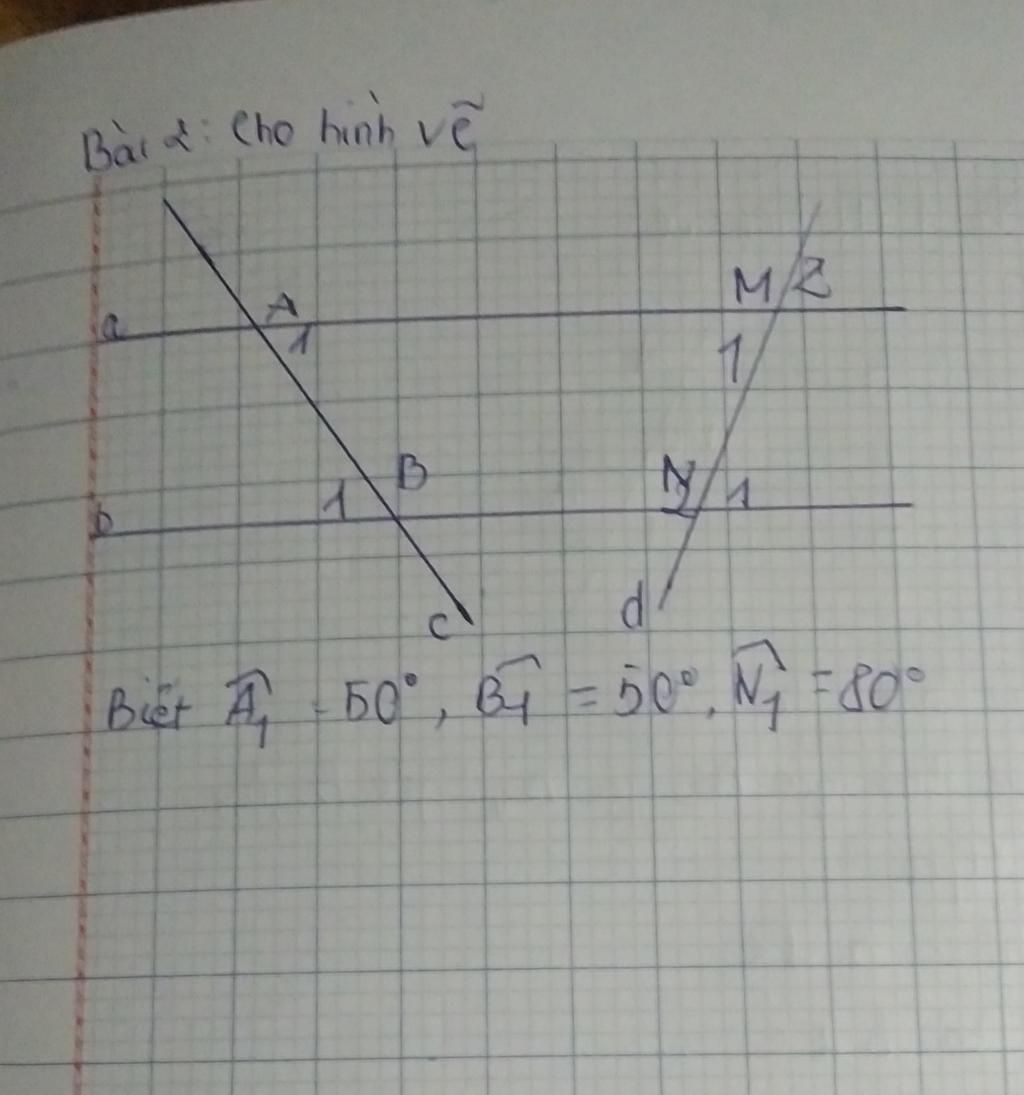 Bài 2: Cho hình vẽ
A M 2
a 1
1
B N
1 1
b
c d
Biết A₁ = 50°, B₁ = 50°, N₁ = 80°